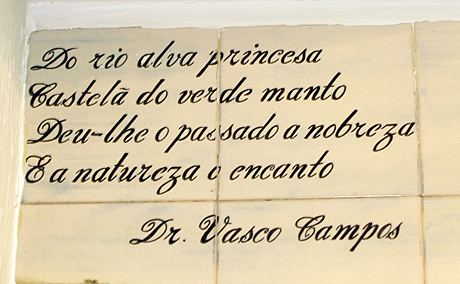 Do rio alva princesa
Castelã do verde manto
Deu-lhe o passado a nobreza
E a natureza o encanto
Dr. Vasco Campos